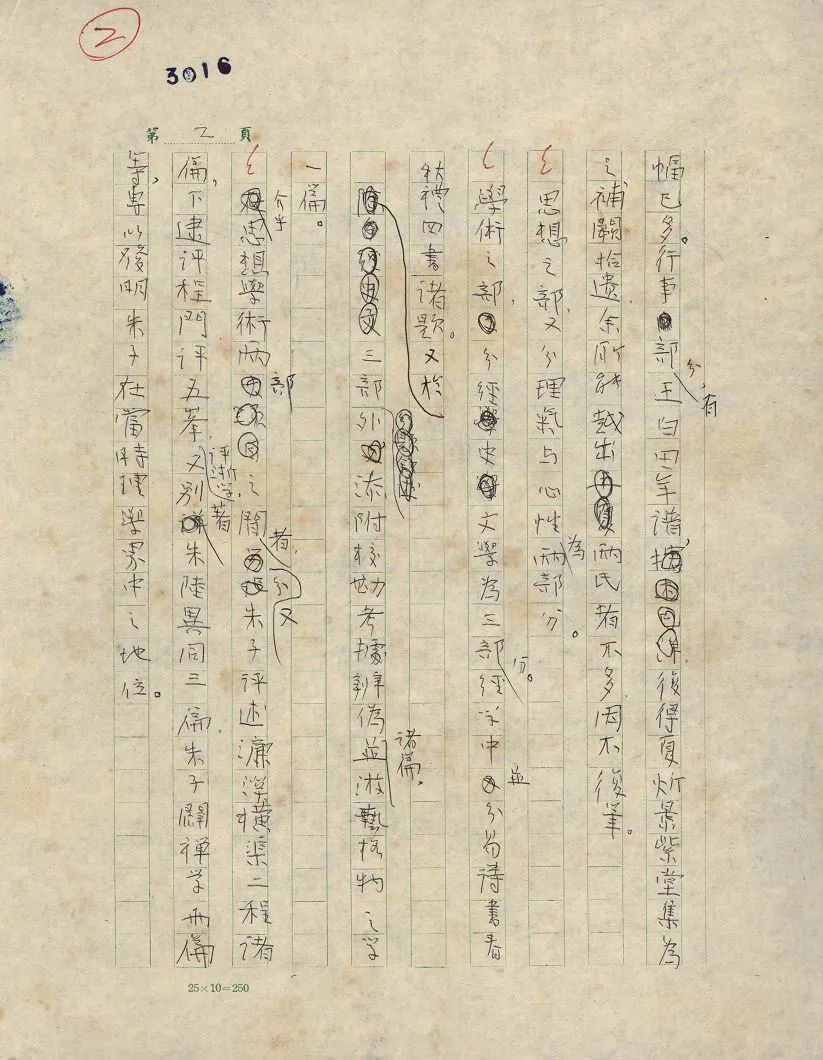 2
3016
第 2 頁
幅已多。行事部分,有王白田年譜,後得夏炘景紫堂集為
之補闕拾遺,余所能越出兩氏者不多,因不復筆。
思想之部,又分理氣与心性為兩部分。
學術之部,分經史文學為三部分。經学中並分易詩書春
秋禮四書諸題。又於
三部外添附校勘考據辨偽諸篇。並游藝格物之学
一篇。
介乎思想學術兩部之間者,又分朱子評述濂溪橫渠二程諸
篇,下逮評程門評五峯,評浙學,又別著朱陸異同三篇,朱子闢禅学兩篇
等,專以發明朱子在當時理學界中之地位。
25×10=250